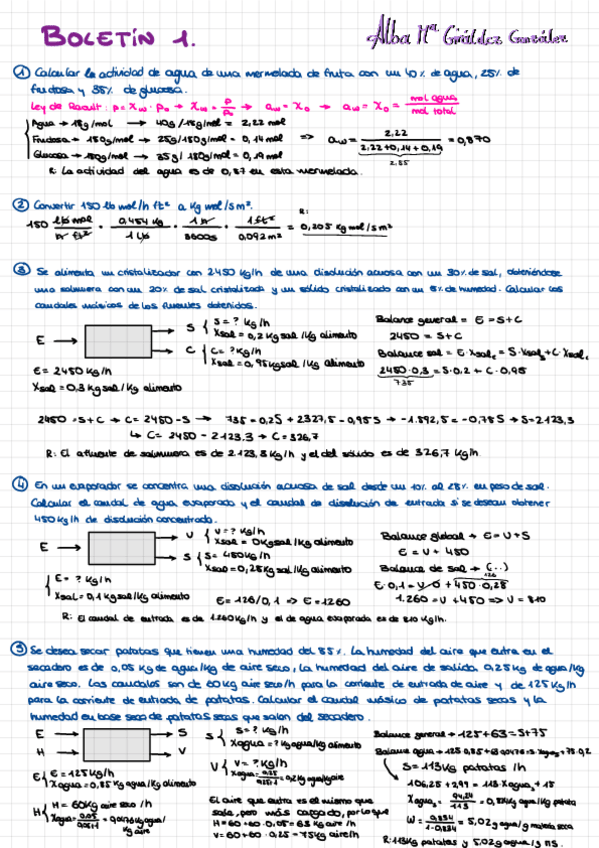 BOLETÍN 1.
Alba Mª Giráldez González
① Calcular la actividad de agua de una mermelada de fruta con un 40% de agua, 25% de
fructosa y 35% de glucosa.
Ley de Raoult: P = Xw · Po → Xw = P/Po → aw = Xo → aw = Xo = mol agua / mol total
Agua → 18g/mol → 40g/18g/mol = 2,22 mol
Fructosa → 180g/mol → 25g/180g/mol = 0,14 mol => aw = 2,22 / 2,22+0,14+0,19 = 0,870
2,55
Glucosa → 180g/mol → 35g/180g/mol = 0,19 mol
R: La actividad del agua es de 0,87 en esta mermelada.
② Convertir 150 lb mol/h ft² a Kg mol/s m².
150 lb mol / h ft² · 0,454 Kg / 1 lb · 1 h / 3600s · 1 ft² / 0,092 m² = R: 0,205 Kg mol/s m²
③ Se alimenta un cristalizador con 2450 Kg/h de una disolución acuosa con un 30% de sal, obteniéndose
una salmuera con un 20% de sal cristalizada y un sólido cristalizado con un 5% de humedad. Calcular los
caudales másicos de los fluentes obtenidos.
E → → S { S = ? Kg/h
Xsal = 0,2 Kg sal/Kg alimento
→ C { C = ? Kg/h
Xsal = 0,95 Kg sal/Kg alimento
E = 2450 Kg/h
Xsal = 0,3 Kg sal/Kg alimento
Balance general = E = S+C
2450 = S+C
Balance sal = E·Xsal₁ = S·Xsal₂ + C·Xsal₃
2450·0,3 = S·0,2 + C·0,95
735
2450 = S+C → C = 2450 - S → 735 = 0,2S + 2327,5 - 0,95S → -1.592,5 = -0,75S → S = 2123,3
↳ C = 2450 - 2.123.3 → C = 326,7
R: El afluente de salmuera es de 2.123,3 Kg/h y el del sólido es de 326,7 Kg/h.
④ En un evaporador se concentra una disolución acuosa de sal desde un 10% al 28% en peso de sal.
Calcular el caudal de agua evaporado y el caudal de disolución de entrada si se desean obtener
450 Kg/h de disolución concentrada.
E → → V { V = ? Kg/h
Xsal = 0 Kg sal/Kg alimento
→ S { S = 450 Kg/h
Xsal = 0,28 Kg sal/Kg alimento
{ E = ? Kg/h
Xsal = 0,1 Kg sal/Kg alimento
E = 126/0,1 => E = 1260
Balance global → E = V+S
E = V + 450
Balance de sal → (..)
126
E·0,1 = V·0 + 450·0,28
1.260 = V + 450 => V = 810
R: El caudal de entrada es de 1.260 Kg/h y el de agua evaporada es de 810 Kg/h.
⑤ Se desea secar patatas que tienen una humedad del 85%. La humedad del aire que entra en el
secadero es de 0,05 Kg de agua/Kg de aire seco, la humedad del aire de salida 0,25 Kg de agua/Kg
aire seco. Los caudales son de 60 Kg aire seco/h para la corriente de entrada de aire y de 125 Kg/h
para la corriente de entrada de patatas. Calcular el caudal másico de patatas secas y la
humedad en base seca de patatas secas que salen del secadero.
E → → S
H → → V
S { S = ? Kg/h
Xagua = ? Kg agua/Kg alimento
V { V = ? Kg/h
Xagua = 0,25/0,25+1 = 0,2 Kg agua/Kg aire
E { E = 125 Kg/h
Xagua = 0,85 Kg agua/Kg alimento
H { H = 60 Kg aire seco/h
Xagua = 0,05/0,05+1 = 0,0476 Kg agua/Kg aire
El aire que entra es el mismo que
sale, pero más cargado, por lo que
H = 60+60·0,05 = 63 Kg aire/h
V = 60+60·0,25 = 75 Kg aire/h
Balance general → 125+63 = S+75
Balance agua → 125·0,85+63·0,0476 = S·Xagua₃ + 75·0,2
S = 113 Kg patatas/h
106,25 + 2,99 = 113·Xagua₃ + 15
Xagua₃ = 94,24/113 = 0,834 Kg agua/Kg patata
W = 0,834/1-0,834 = 5,02 g agua/g materia seca
R: 113 Kg patatas y 5,02 g agua/g ms.